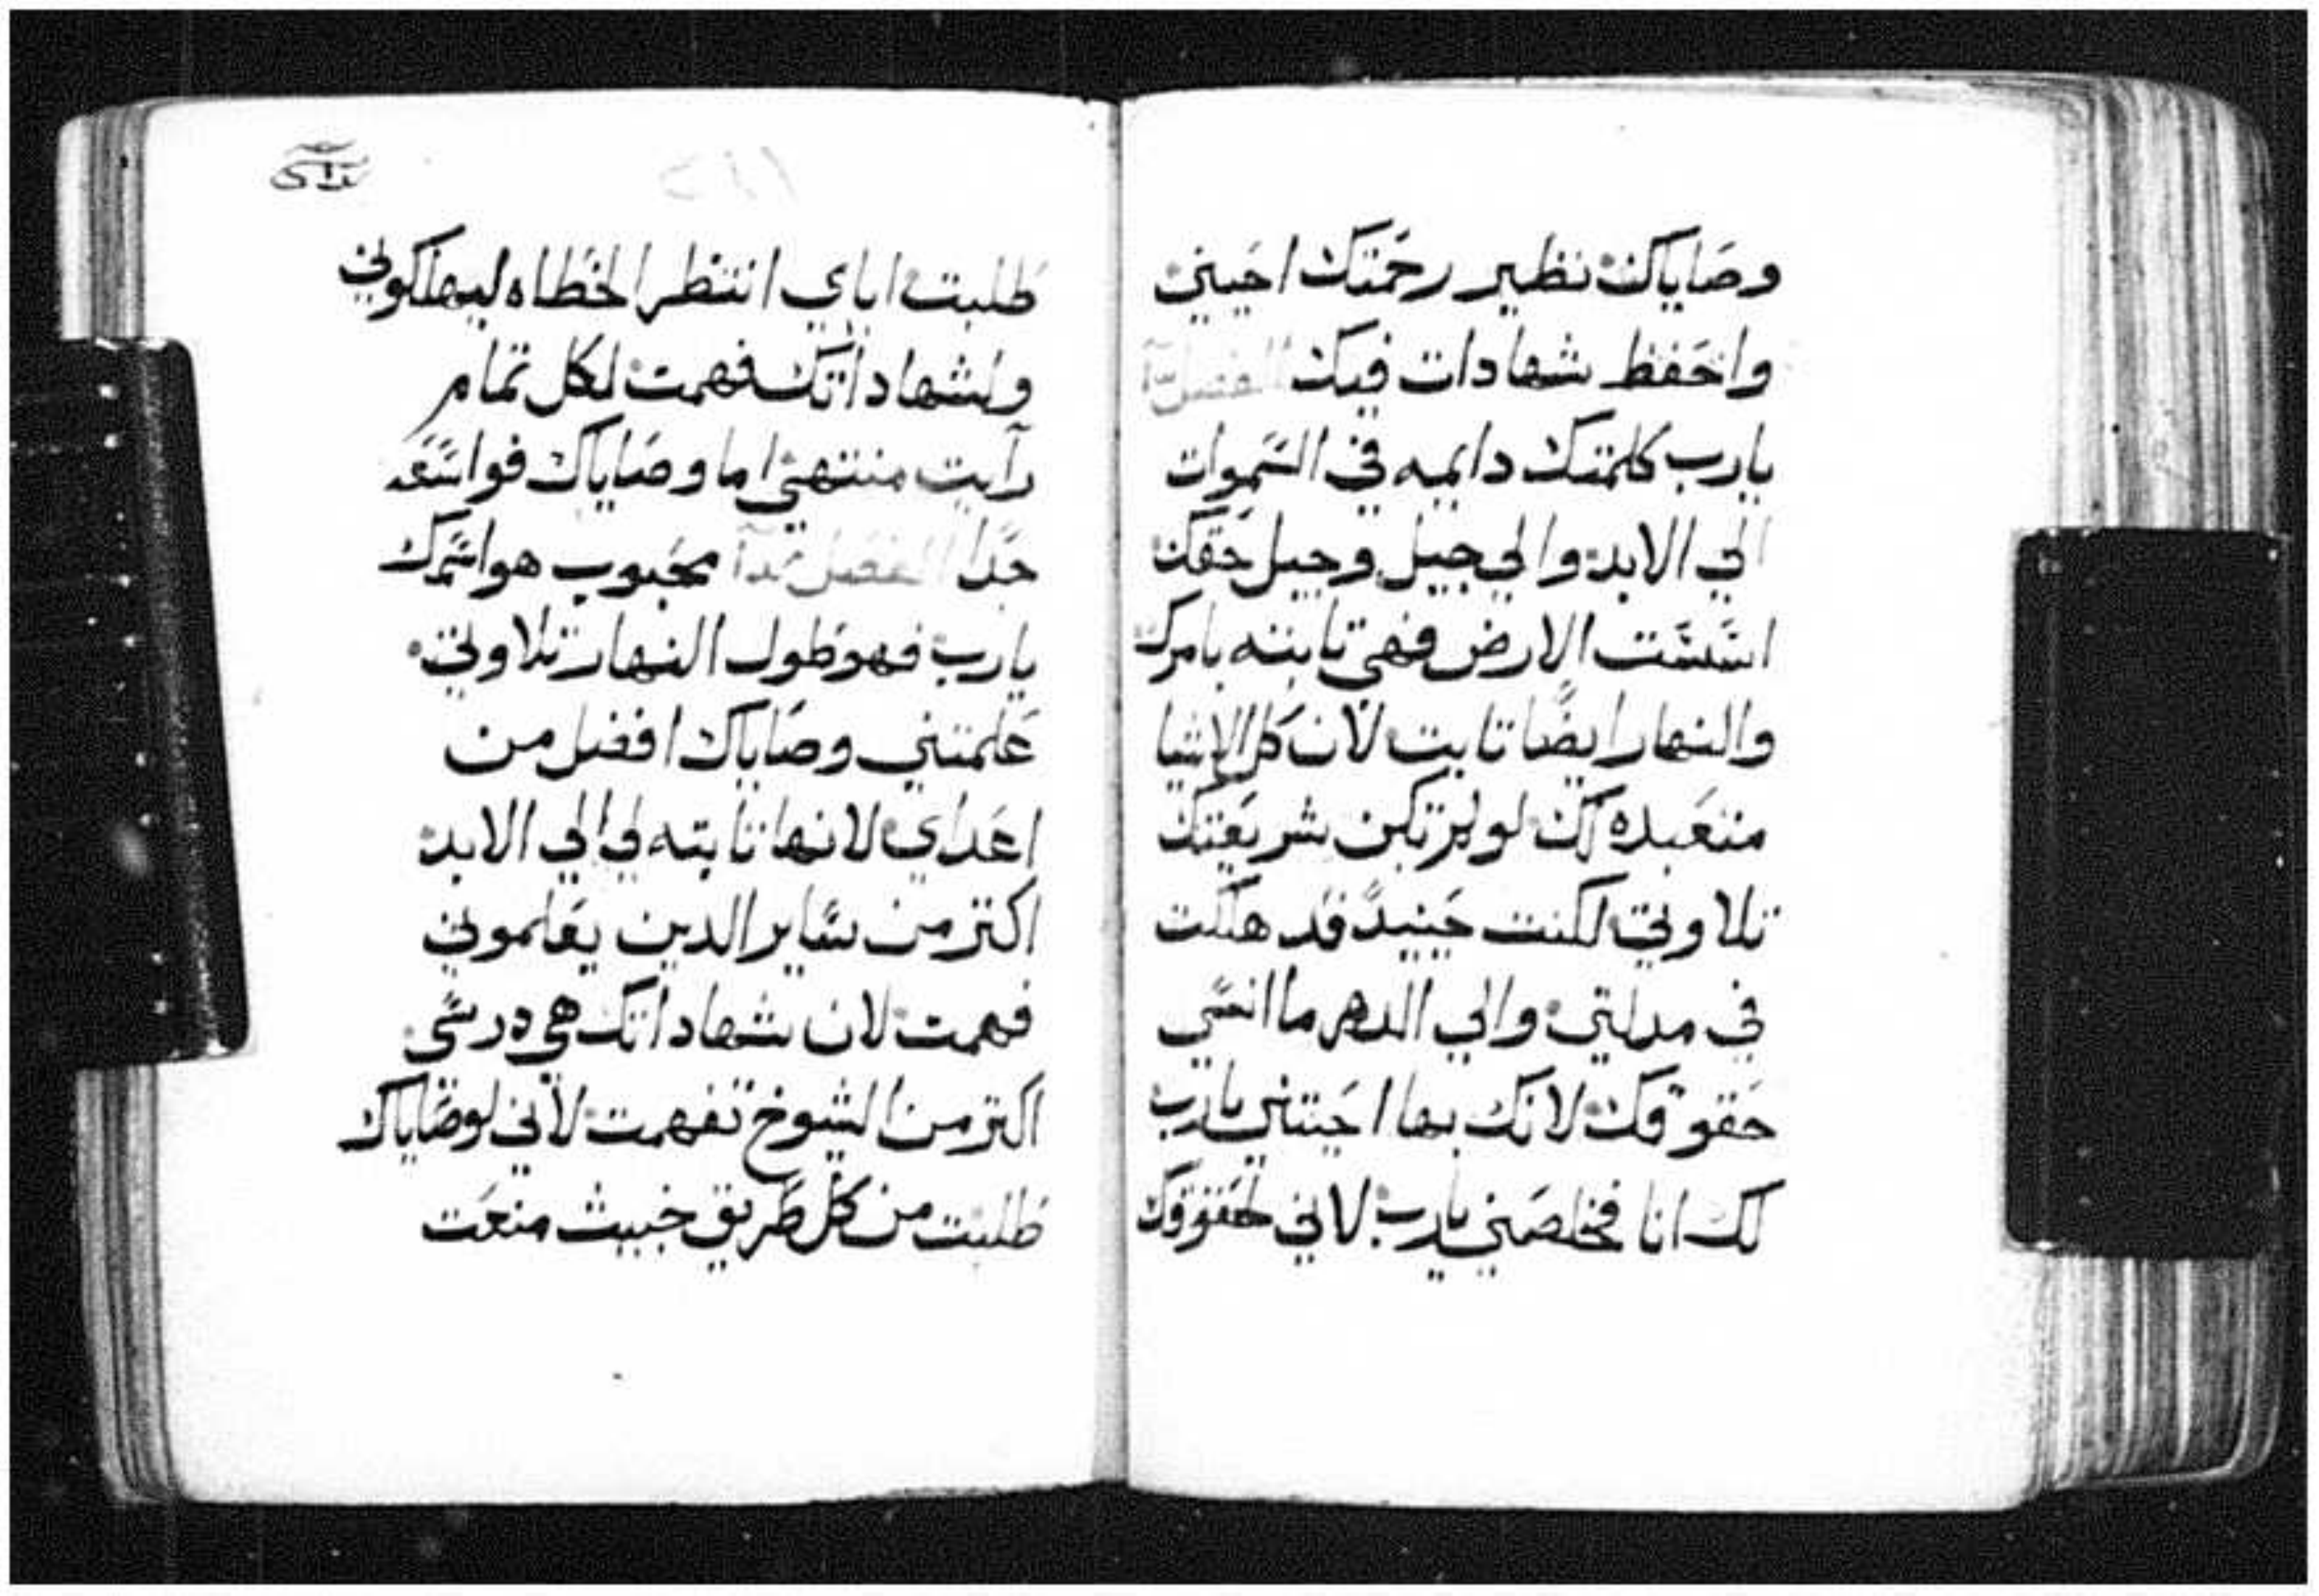 وصاياك نظير رحمتك احيينى
واحفظ شهادات فيك الفصل
يارب كلمتك دايمه في السموات
الي الابد والي جيل وجيل حقك
اسست الارض فهي تابته بامرك
والنهار ايضًا تابت لان كل الاشيا
متعبده لك لو لم تكن شريعتك
تلاوتي لكنت حينيدً قد هلكت
في مدلتي والي الدهر ما انسي
حقوقك لانك بها احيتني يارب
لك انا فخلصني يارب لاني لحقوقك
طلبت اياي انتظر الخطاه ليهلكوني
ولشهاداتك فهمت لكل تمام
رآيت منتهي اما وصاياك فواسعه
جدًا الفصل محبوب هو اسمك
يارب فهو طول النهار تلاوتي
علمتني وصاياك افضل من
اعداي لانها تابته لي الي الابد
اكتر من ساير الدين يعلموني
فهمت لان شهاداتك هي درسي
اكتر من الشيوخ تفهمت لاني لوصاياك
طلبت من كل طريق خبيث منعت